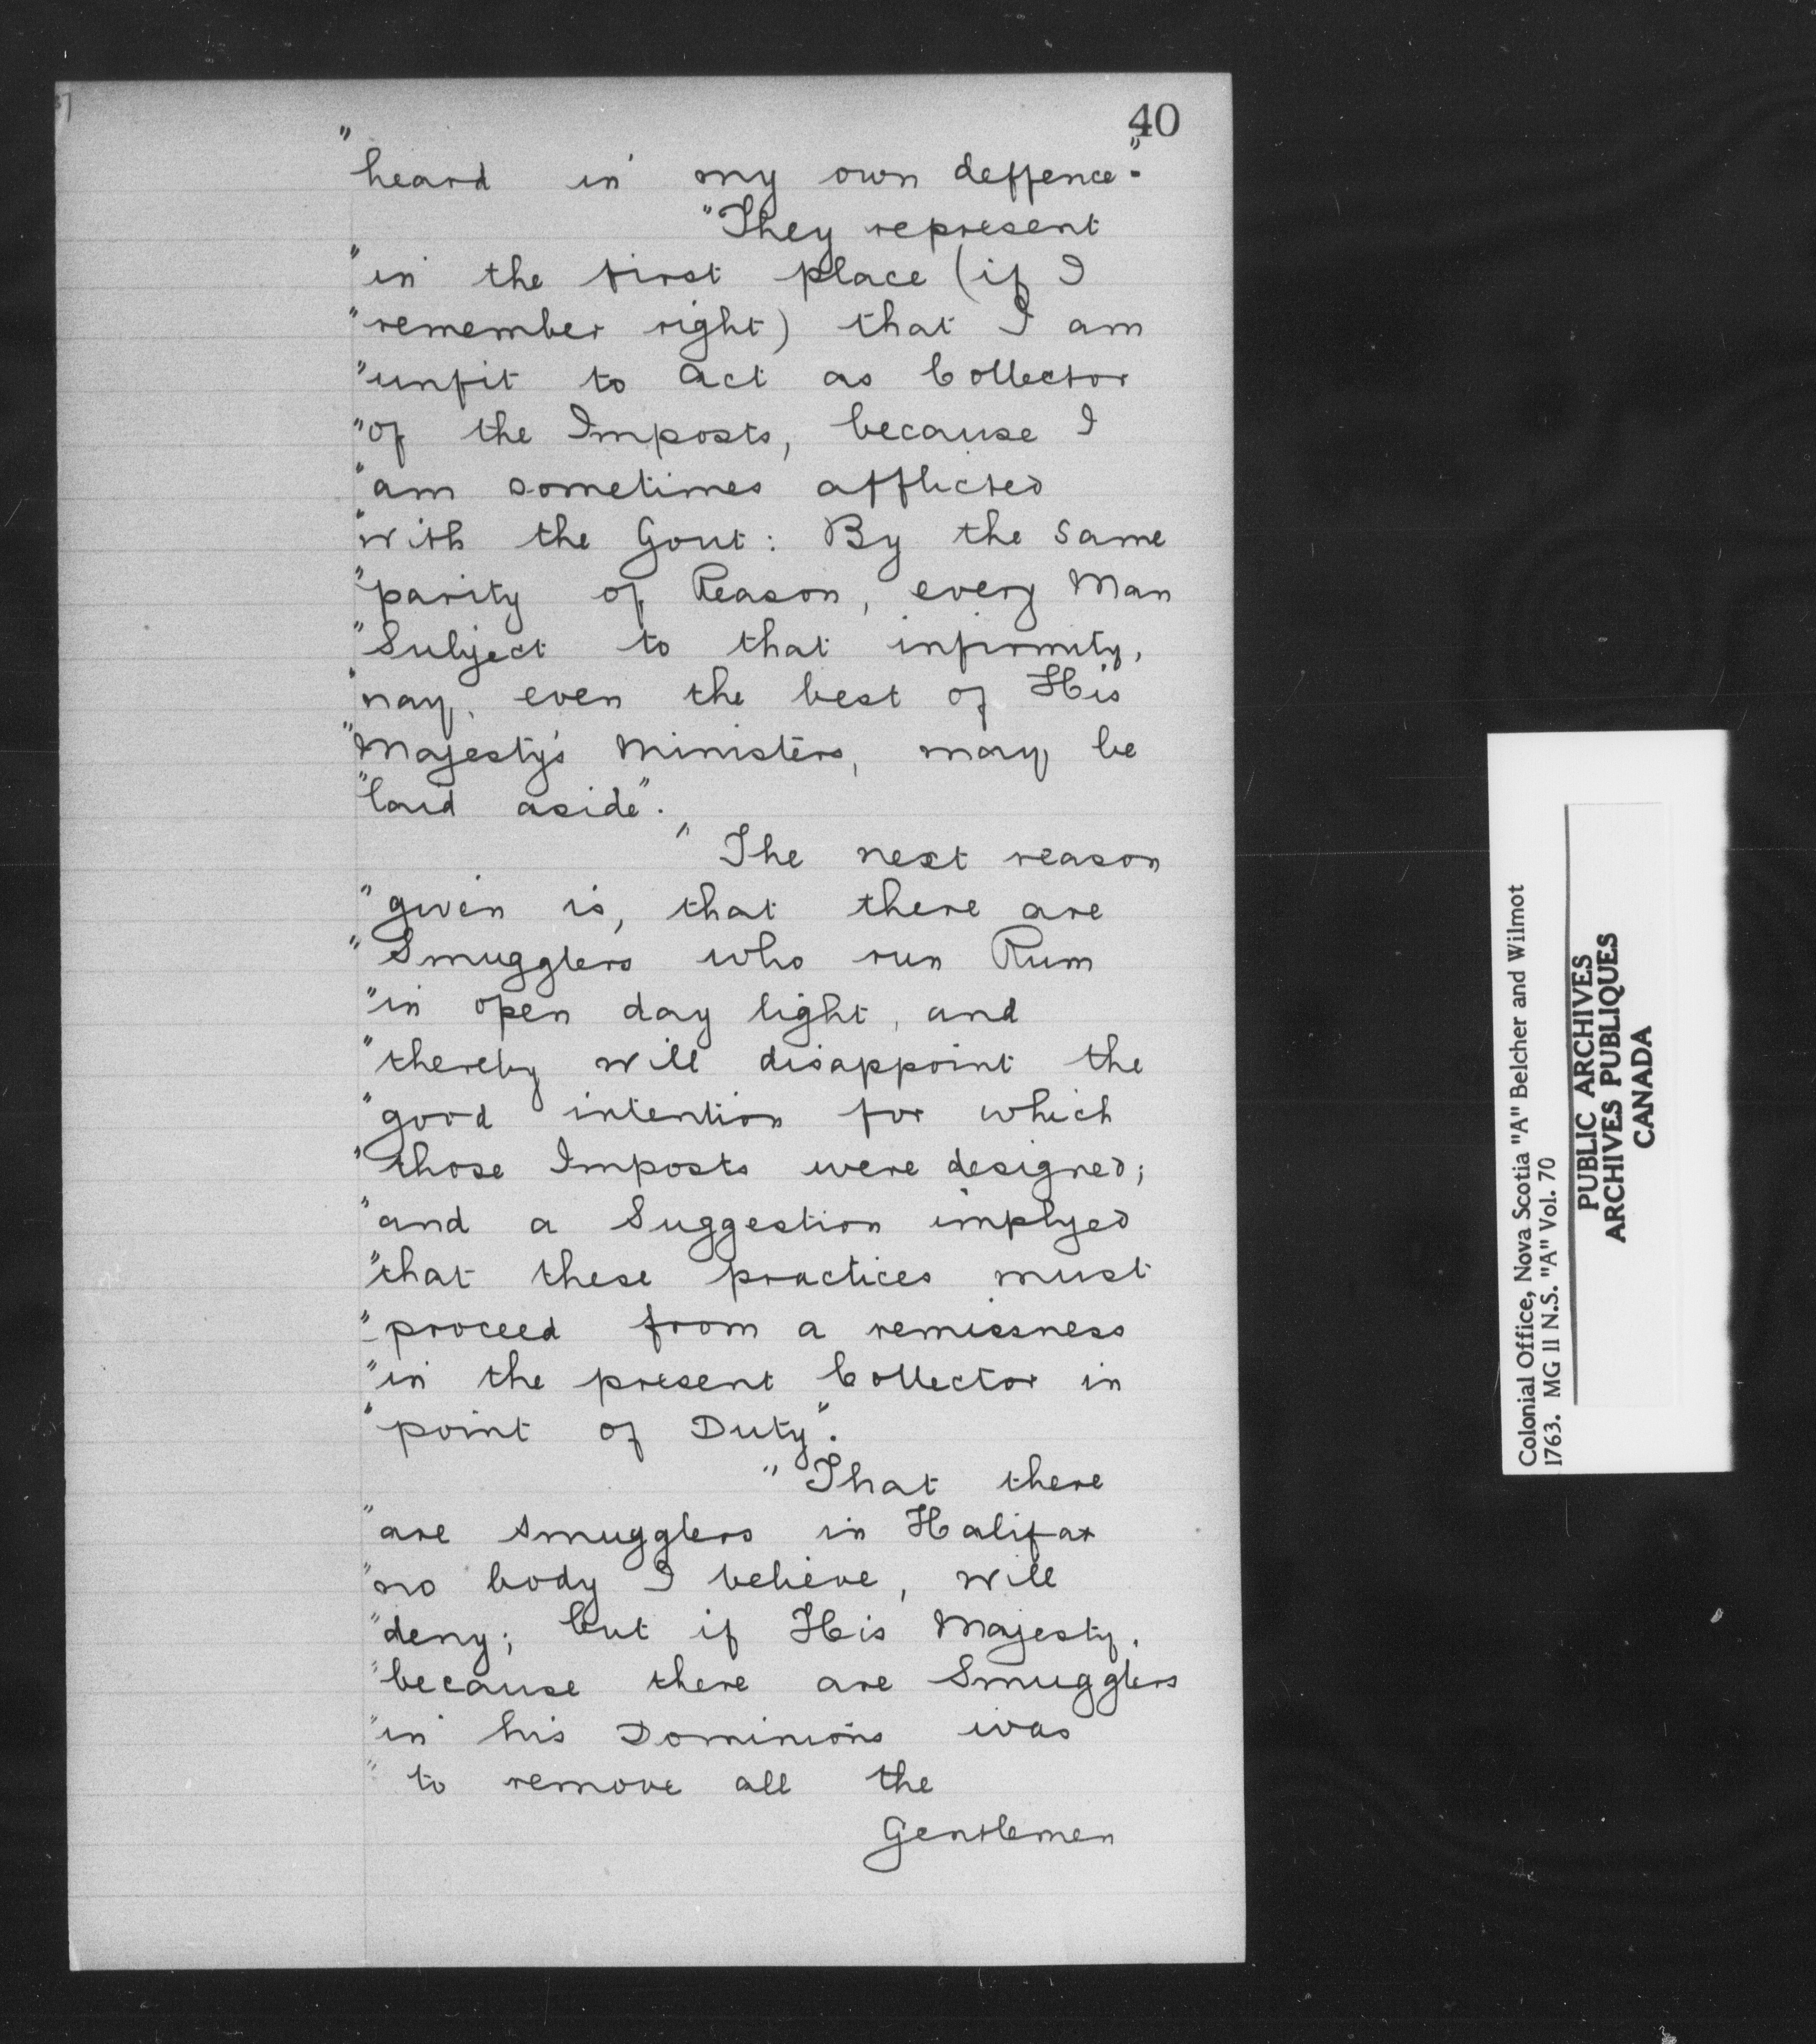 40
"heard in my own deffence."
"They represent
"in the first place (if I
"remember right) that I am
"unfit to act as Collector
"of the Imposts, because I
"am sometimes afflicted
"with the Gout: By the same
"parity of Reason, every Man
"Subject to that infirmity,
"nay, even the best of His
"Majesty's Ministers, may be
"laid aside".
"The next reason
"given is, that there are
"Smugglers who run Rum
"in open day light, and
"thereby will disappoint the
"good intention for which
"those Imposts were designed;
"and a Suggestion implyed
"that these practices must
"proceed from a remissness
"in the present Collector in
"point of Duty".
"That there
"are smugglers in Halifax
"no body I believe, will
"deny; but if His Majesty,
"because there are Smugglers
"in his Dominions was
"to remove all the
Gentlemen
Colonial Office, Nova Scotia "A" Belcher and Wilmot
1763. MG II N.S. "A" Vol. 70
PUBLIC ARCHIVES
ARCHIVES PUBLIQUES
CANADA